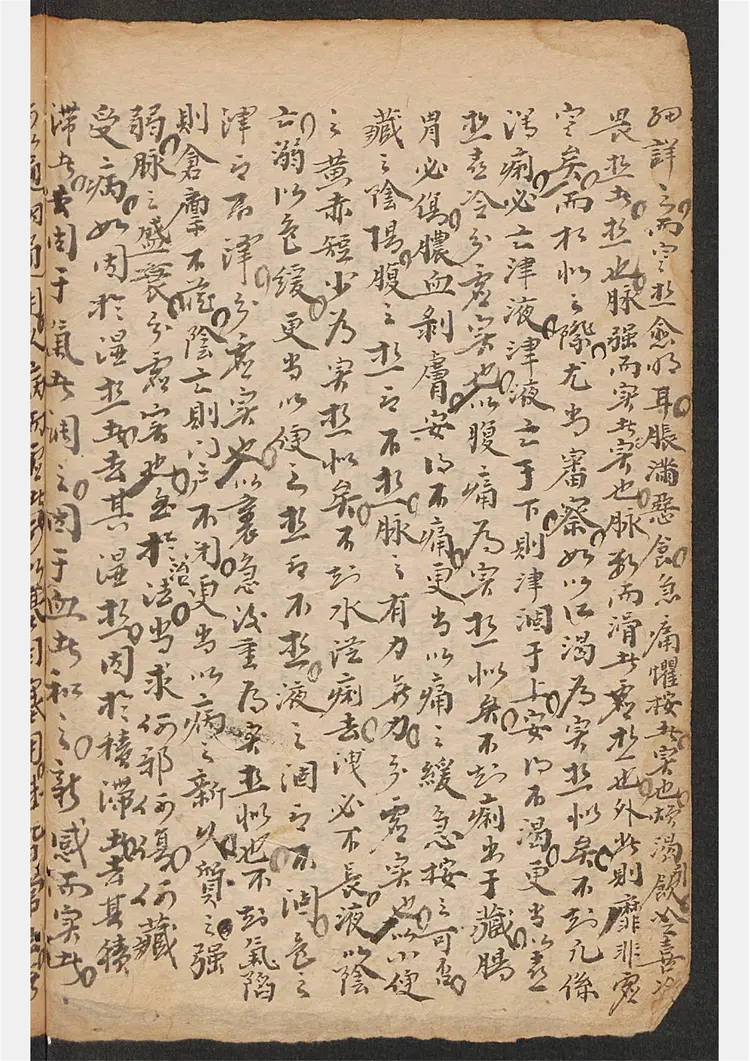 細詳之而實熱愈明耳脹滿惡食急痛懼按者實也煩渴飲冷喜冷
畏熱者熱也脉強而實者實也脉數而滑者實熱也外此則靡非虛
寒矣而相似之際尤當審察如以口渴為實熱似矣不知凡係
瀉痢必亡津液津液亡于下則津涸于上安得不渴更當以喜
熱喜冷分虛實也以腹痛為實熱似矣不知痢出于臟腸
胃必傷膿血剝膚安得不痛更當以痛之緩急按之可否
藏之陰陽腹之熱與不熱脉之有力無力分虛實也以小便
之黃赤短少為實熱似矣不知水從痢去洩必不長液以陰
亡溺以色緩更當以便之熱與不熱液之涸與不涸色之
澤與不澤分虛實也以裏急後重為實熱似也不知氣陷
則倉廩不藏陰亡則門户不閉更當以病之新久質之強
弱脉之盛衰分虛實也至於治法當求何邪何傷何藏
受病如因於濕熱者去其濕熱因於積滯者去其積
滯者因于氣者調之因于血者和之新感而實者